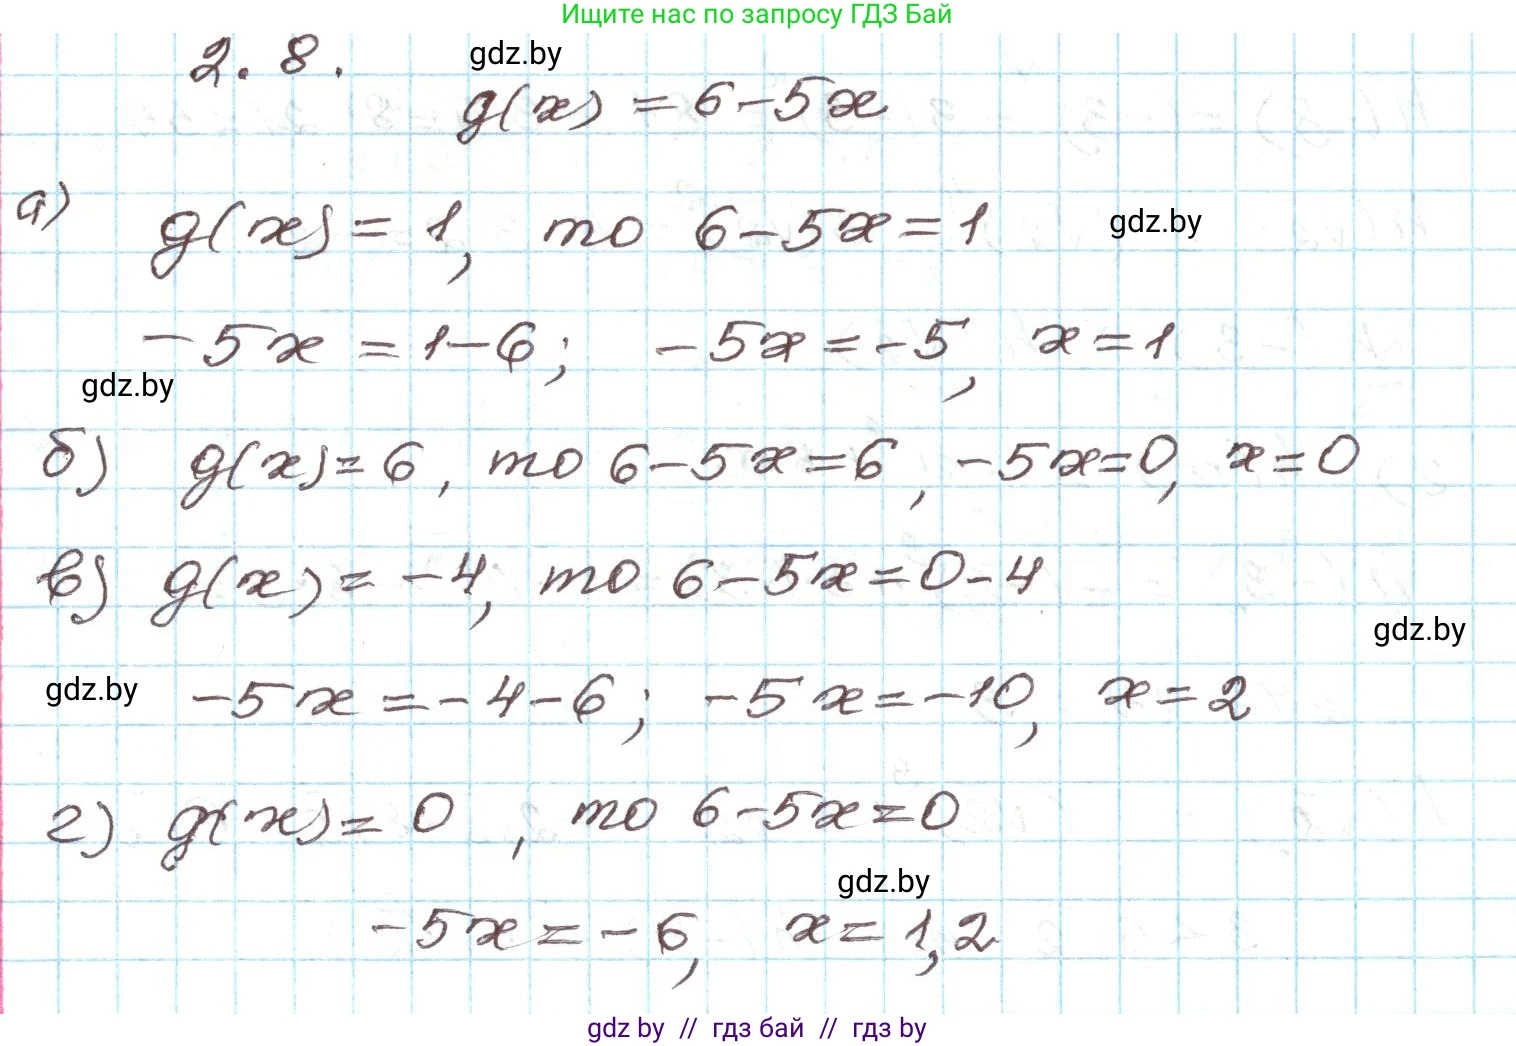 Ищите нас по запросу ГДЗ Бай
2.8. gdz.by
g(x) = 6-5x
а) g(x) = 1, то 6-5x=1 gdz.by
-5x = 1-6; -5x=-5, x=1
gdz.by
б) g(x)=6, то 6-5x=6, -5x=0, x=0
в) g(x)= -4, то 6-5x=0-4
gdz.by
gdz.by -5x=-4-6; -5x=-10, x=2
г) g(x)=0, то 6-5x=0
gdz.by
-5x=-6, x=1,2
gdz by // гдз бай // гдз by